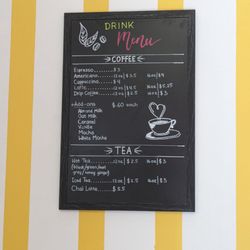 DRINK
Menu
COFFEE
Espresso $3
Americano 12oz | $3.5 16oz | $4
Cappuccino $4
Latte 12oz | $4.5 16oz | $5.25
Drip Coffee 12oz | $2.5 16oz | $3
+Add-ons $.60 each
Almond Milk
Oat Milk
Caramel
Vanilla
Mocha
White Mocha
TEA
Hot Tea 12oz | $2.5 16oz | $3
Iced Tea 12oz | $2.5 16oz | $3
Chai Latte $5.5